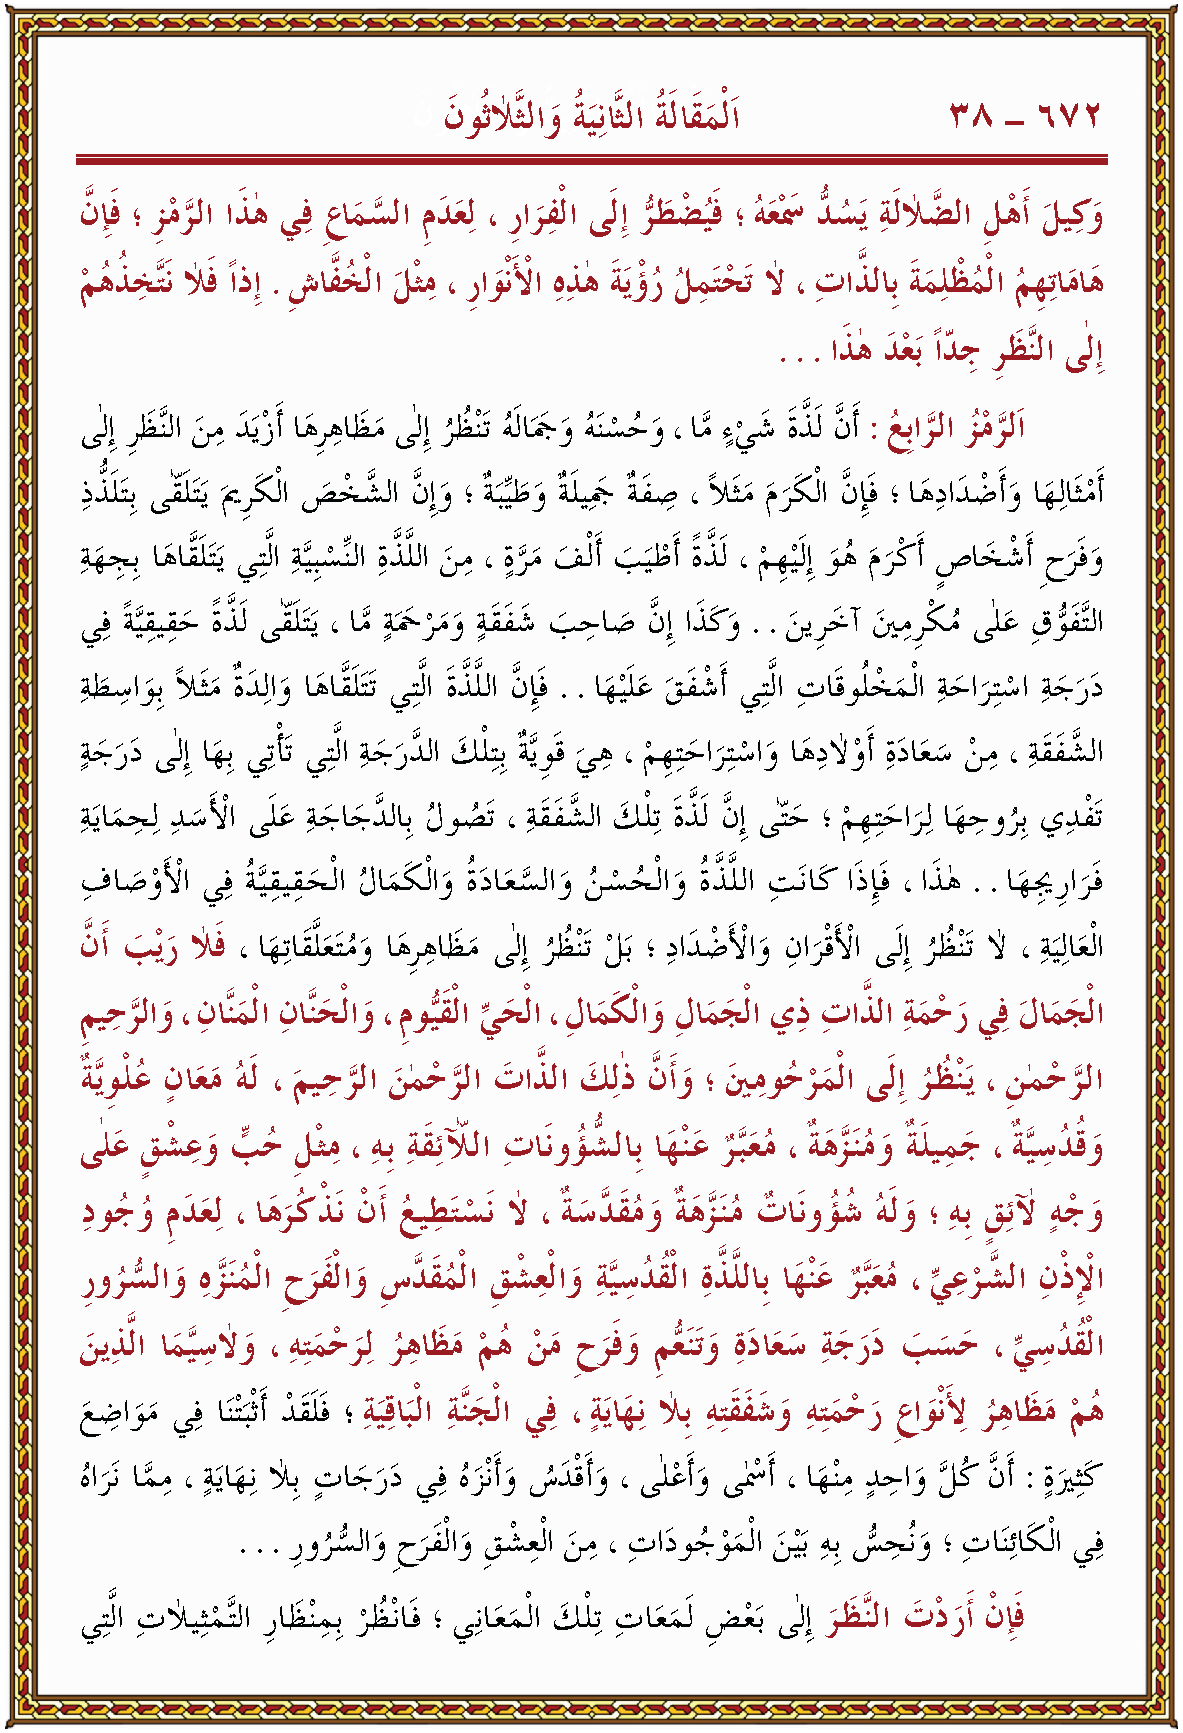 ٦٧٢ – ٣٨ اَلْمَقَالَةُ الثَّانِيَةُ وَالثَّلَاثُونَ
وَكِيلَ أَهْلِ الضَّلَالَةِ يَسُدُّ سَمْعَهُ ؛ فَيُضْطَرُّ إِلَى الْفِرَارِ ، لِعَدَمِ السَّمَاعِ فِي هٰذَا الرَّمْزِ ؛ فَإِنَّ
هَامَاتِهِمُ الْمُظْلِمَةَ بِالذَّاتِ ، لَا تَحْتَمِلُ رُؤْيَةَ هٰذِهِ الْأَنْوَارِ ، مِثْلَ الْخُفَّاشِ . إِذاً فَلَا نَتَّخِذُهُمْ
إِلَى النَّظَرِ جِدّاً بَعْدَ هٰذَا . . .
اَلرَّمْزُ الرَّابِعُ : أَنَّ لَذَّةَ شَيْءٍ مَّا ، وَحُسْنَهُ وَجَمَالَهُ تُنْظَرُ إِلَى مَظَاهِرِهَا أَزْيَدَ مِنَ النَّظَرِ إِلَى
أَمْثَالِهَا وَأَضْدَادِهَا ؛ فَإِنَّ الْكَرَمَ مَثَلاً ، صِفَةٌ جَمِيلَةٌ وَطَيِّبَةٌ ؛ وَإِنَّ الشَّخْصَ الْكَرِيمَ يَتَلَقَّى بِتَلَذُّذِ
وَفَرَحِ أَشْخَاصٍ أَكْرَمَ هُوَ إِلَيْهِمْ ، لَذَّةً أَطْيَبَ أَلْفَ مَرَّةٍ ، مِنَ اللَّذَّةِ النِّسْبِيَّةِ الَّتِي يَتَلَقَّاهَا بِجِهَةِ
التَّفَوُّقِ عَلَى مُكْرِمِينَ آخَرِينَ . . وَكَذَا إِنَّ صَاحِبَ شَفَقَةٍ وَمَرْحَمَةٍ مَّا ، يَتَلَقَّى لَذَّةً حَقِيقِيَّةً فِي
دَرَجَةِ اسْتِرَاحَةِ الْمَخْلُوقَاتِ الَّتِي أَشْفَقَ عَلَيْهَا . . فَإِنَّ اللَّذَّةَ الَّتِي تَتَلَقَّاهَا وَالِدَةٌ مَثَلاً بِوَاسِطَةِ
الشَّفَقَةِ ، مِنْ سَعَادَةِ أَوْلَادِهَا وَاسْتِرَاحَتِهِمْ ، هِيَ قَوِيَّةٌ بِتِلْكَ الدَّرَجَةِ الَّتِي تَأْتِي بِهَا إِلَى دَرَجَةٍ
تَفْدِي بِرُوحِهَا لِرَاحَتِهِمْ ؛ حَتَّى إِنَّ لَذَّةَ تِلْكَ الشَّفَقَةِ ، تَصُولُ بِالدَّجَاجَةِ عَلَى الْأَسَدِ لِحِمَايَةِ
فَرَارِيجِهَا . . هٰذَا ، فَإِذَا كَانَتِ اللَّذَّةُ وَالْحُسْنُ وَالسَّعَادَةُ وَالْكَمَالُ الْحَقِيقِيَّةُ فِي الْأَوْصَافِ
الْعَالِيَةِ ، لَا تُنْظَرُ إِلَى الْأَقْرَانِ وَالْأَضْدَادِ ؛ بَلْ تُنْظَرُ إِلَى مَظَاهِرِهَا وَمُتَعَلَّقَاتِهَا ، فَلَا رَيْبَ أَنَّ
الْجَمَالَ فِي رَحْمَةِ الذَّاتِ ذِي الْجَمَالِ وَالْكَمَالِ ، الْحَيِّ الْقَيُّومِ ، وَالْحَنَّانِ الْمَنَّانِ ، وَالرَّحِيمِ
الرَّحْمٰنِ ، يَنْظُرُ إِلَى الْمَرْحُومِينَ ؛ وَأَنَّ ذٰلِكَ الذَّاتَ الرَّحْمٰنَ الرَّحِيمَ ، لَهُ مَعَانٍ عُلْوِيَّةٌ
وَقُدُسِيَّةٌ ، جَمِيلَةٌ وَمُنَزَّهَةٌ ، مُعَبَّرٌ عَنْهَا بِالشُّؤُونَاتِ اللَّائِقَةِ بِهِ ، مِثْلِ حُبٍّ وَعِشْقٍ عَلَى
وَجْهٍ لَائِقٍ بِهِ ؛ وَلَهُ شُؤُونَاتٌ مُنَزَّهَةٌ وَمُقَدَّسَةٌ ، لَا نَسْتَطِيعُ أَنْ نَذْكُرَهَا ، لِعَدَمِ وُجُودِ
الْإِذْنِ الشَّرْعِيِّ ، مُعَبَّرٌ عَنْهَا بِاللَّذَّةِ الْقُدُسِيَّةِ وَالْعِشْقِ الْمُقَدَّسِ وَالْفَرَحِ الْمُنَزَّهِ وَالسُّرُورِ
الْقُدُسِيِّ ، حَسَبَ دَرَجَةِ سَعَادَةِ وَتَنَعُّمِ وَفَرَحِ مَنْ هُمْ مَظَاهِرُ لِرَحْمَتِهِ ، وَلَاسِيَّمَا الَّذِينَ
هُمْ مَظَاهِرُ لِأَنْوَاعِ رَحْمَتِهِ وَشَفَقَتِهِ بِلَا نِهَايَةٍ ، فِي الْجَنَّةِ الْبَاقِيَةِ ؛ فَلَقَدْ أَثْبَتْنَا فِي مَوَاضِعَ
كَثِيرَةٍ : أَنَّ كُلَّ وَاحِدٍ مِنْهَا ، أَسْمَى وَأَعْلَى ، وَأَقْدَسُ وَأَنْزَهُ فِي دَرَجَاتٍ بِلَا نِهَايَةٍ ، مِمَّا نَرَاهُ
فِي الْكَائِنَاتِ ؛ وَنُحِسُّ بِهِ بَيْنَ الْمَوْجُودَاتِ ، مِنَ الْعِشْقِ وَالْفَرَحِ وَالسُّرُورِ . . .
فَإِنْ أَرَدْتَ النَّظَرَ إِلَى بَعْضِ لَمَعَاتِ تِلْكَ الْمَعَانِي ؛ فَانْظُرْ بِمِنْظَارِ التَّمْثِيلَاتِ الَّتِي